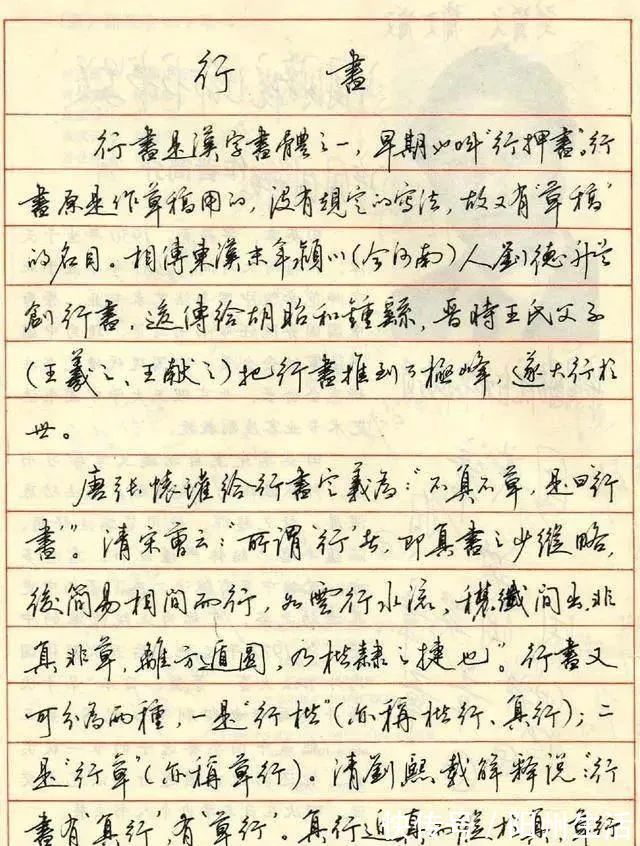 行書
行書是漢字書體之一，早期也叫“行押書”。行
書原是作草稿用的，沒有規定的寫法，故又有“草稿”
的名目。相傳東漢末年潁川（今河南）人劉德升始
創行書，後傳給胡昭和鍾繇，晉時王氏父子
（王羲之、王献之）把行書推到了極峰，遂大行於
世。
唐張懷瓘給行書定義為：“不真不草，是曰‘行
書’”。清宋曹云：“所謂行者，即真書之少縱略，
後簡易相間而行，如雲行水流，穠纖間出，非
真非草，離方遁圓，乃楷隸之捷也”。行書又
可分為兩種，一是“行楷”（亦稱楷行、真行）；二
是“行草”（亦稱草行）。清劉熙載解释説：“行
書有‘真行’，有‘草行’。真行近真而縱於真，草行
快传号／阳州生活